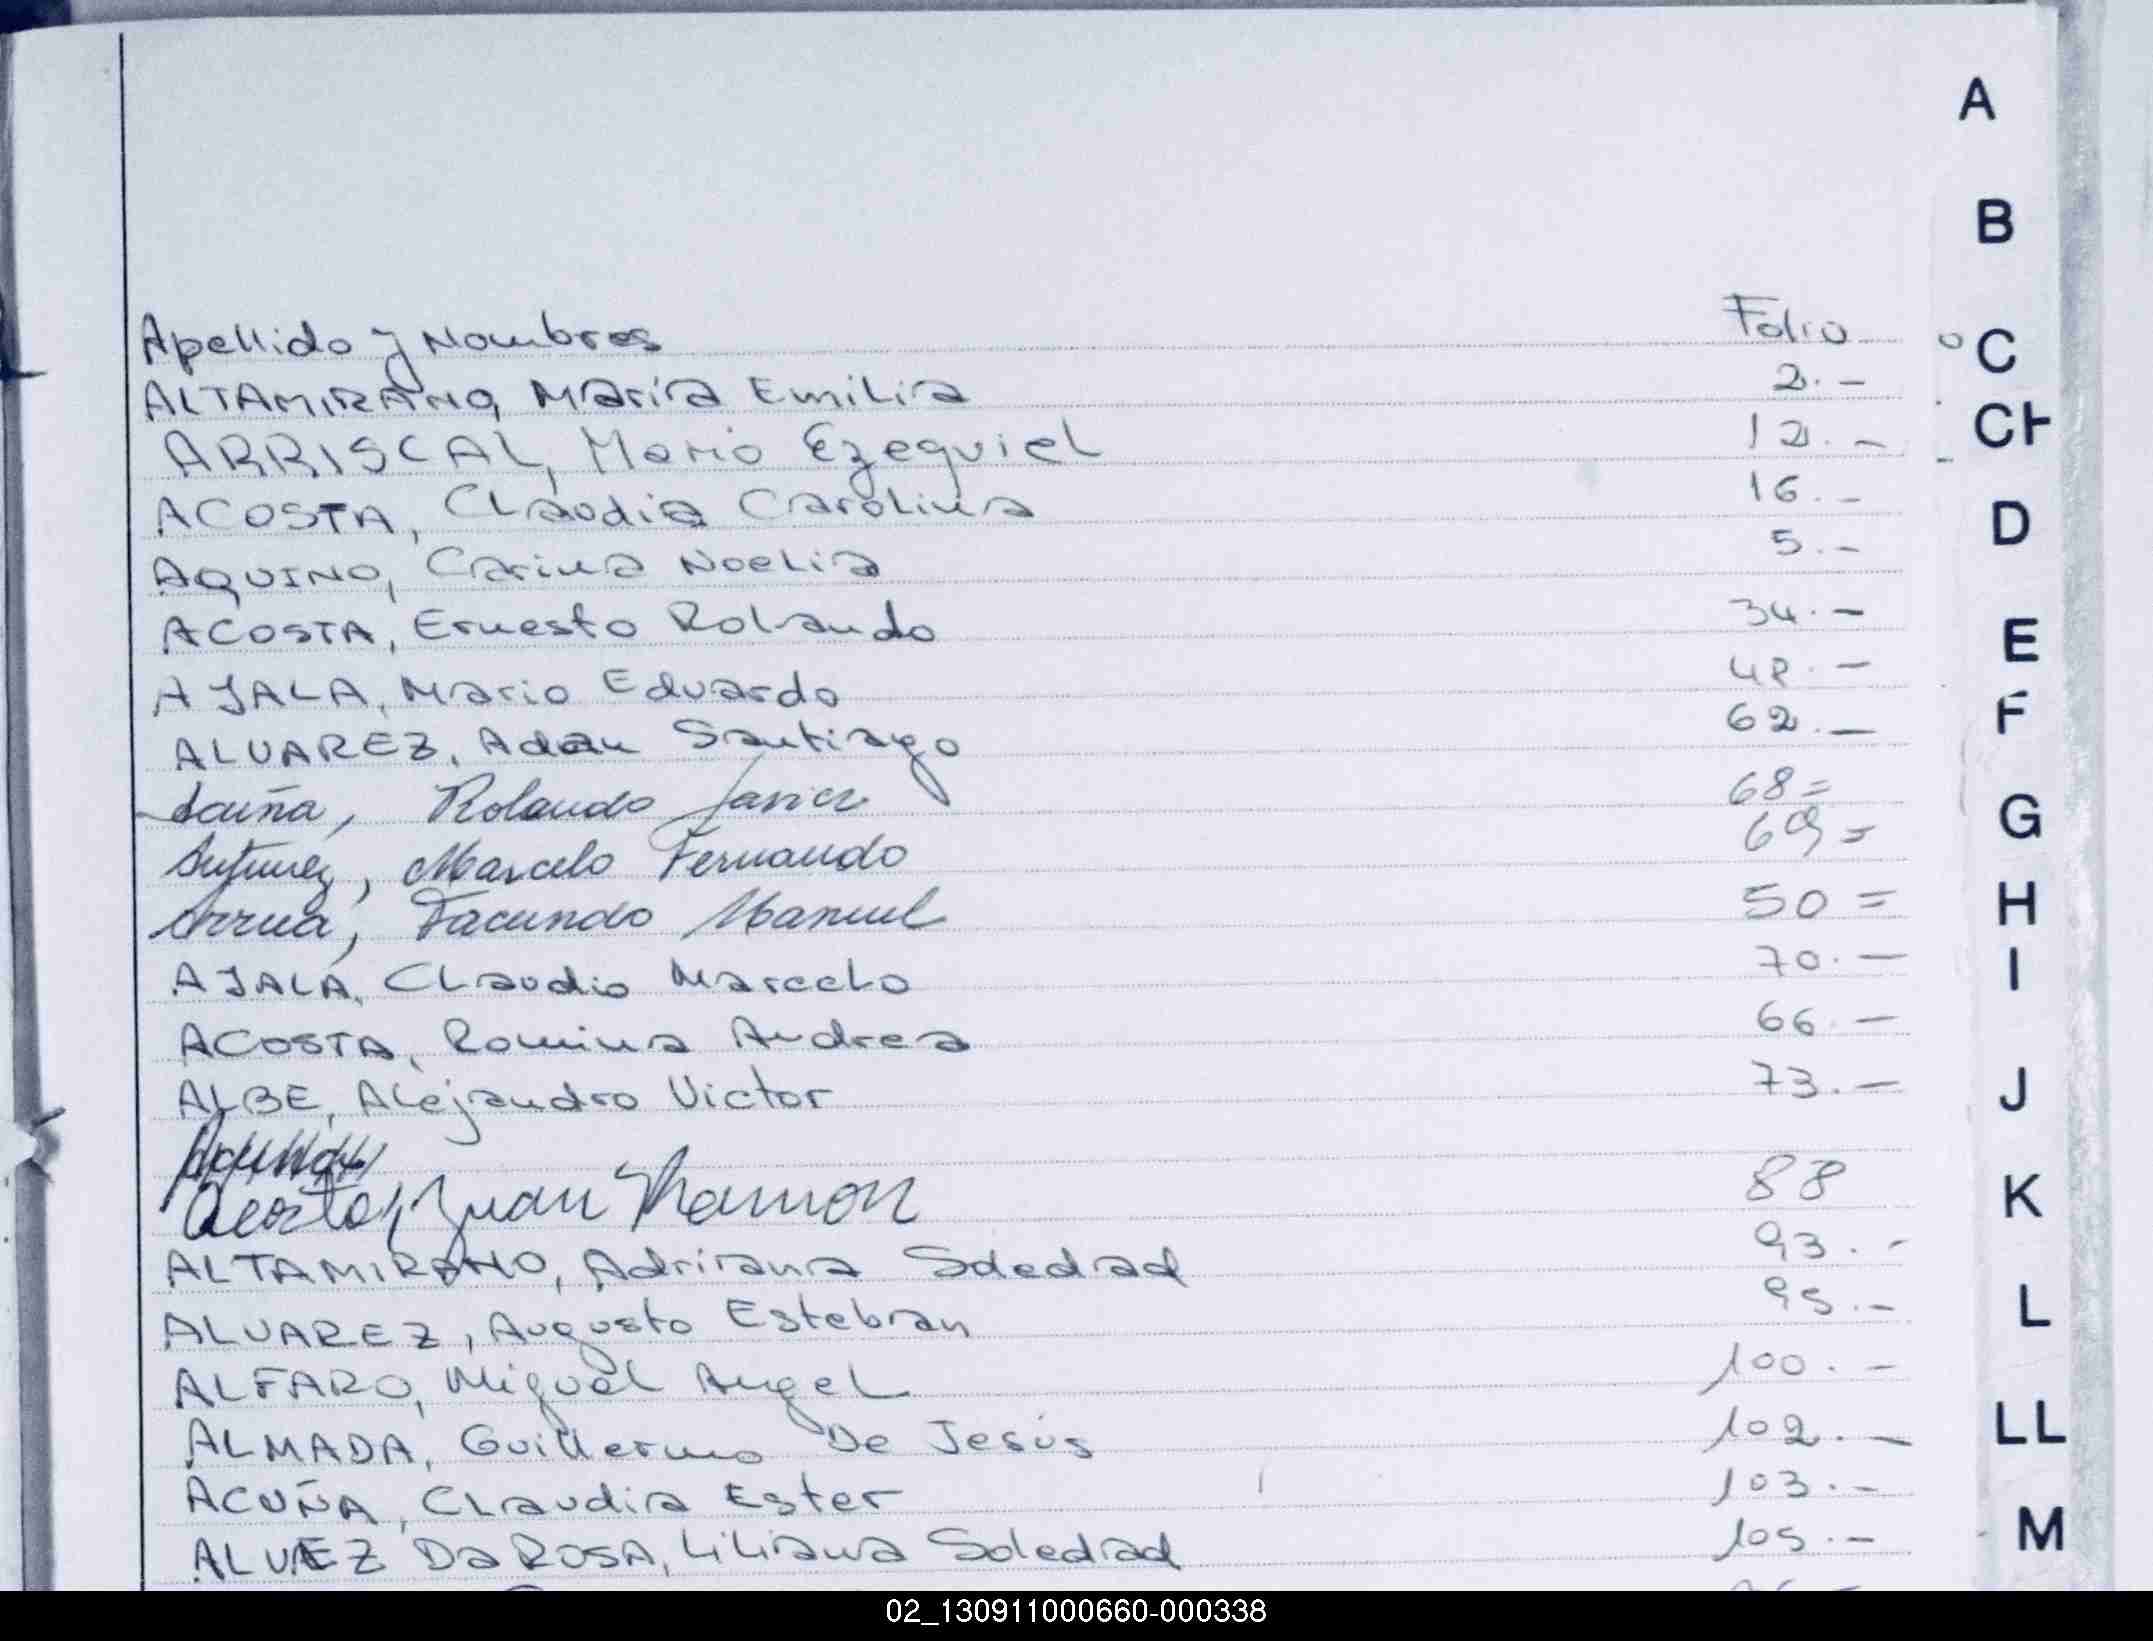 A
B
Apellido y Nombres Folio
C
ALTAMIRANO, María Emilia 2.-
ARRISCAL, Mario Ezequiel 12.-
CH
ACOSTA, Claudia Carolina 16.-
D
AQUINO, Carina Noelia 5.-
ACOSTA, Ernesto Rolando 34.-
E
AJALA, Mario Eduardo 48.-
F
ALVAREZ, Adán Santiago 62.-
Acuña, Rolando Javier 68=
G
Antunez, Marcelo Fernando 69=
Arrua, Facundo Manuel 50=
H
AJALA, Claudio Marcelo 70.-
I
ACOSTA, Romina Andrea 66.-
ALBE, Alejandro Victor 73.-
J
Acosta, Juan Ramon 88
K
ALTAMIRANO, Adriana Soledad 93.-
ALVAREZ, Augusto Esteban 95.-
L
ALFARO, Miguel Angel 100.-
ALMADA, Guillermo De Jesús 102.-
LL
ACUÑA, Claudia Ester 103.-
ALVEZ Da ROSA, Liliana Soledad 105.-
M
02_130911000660-000338